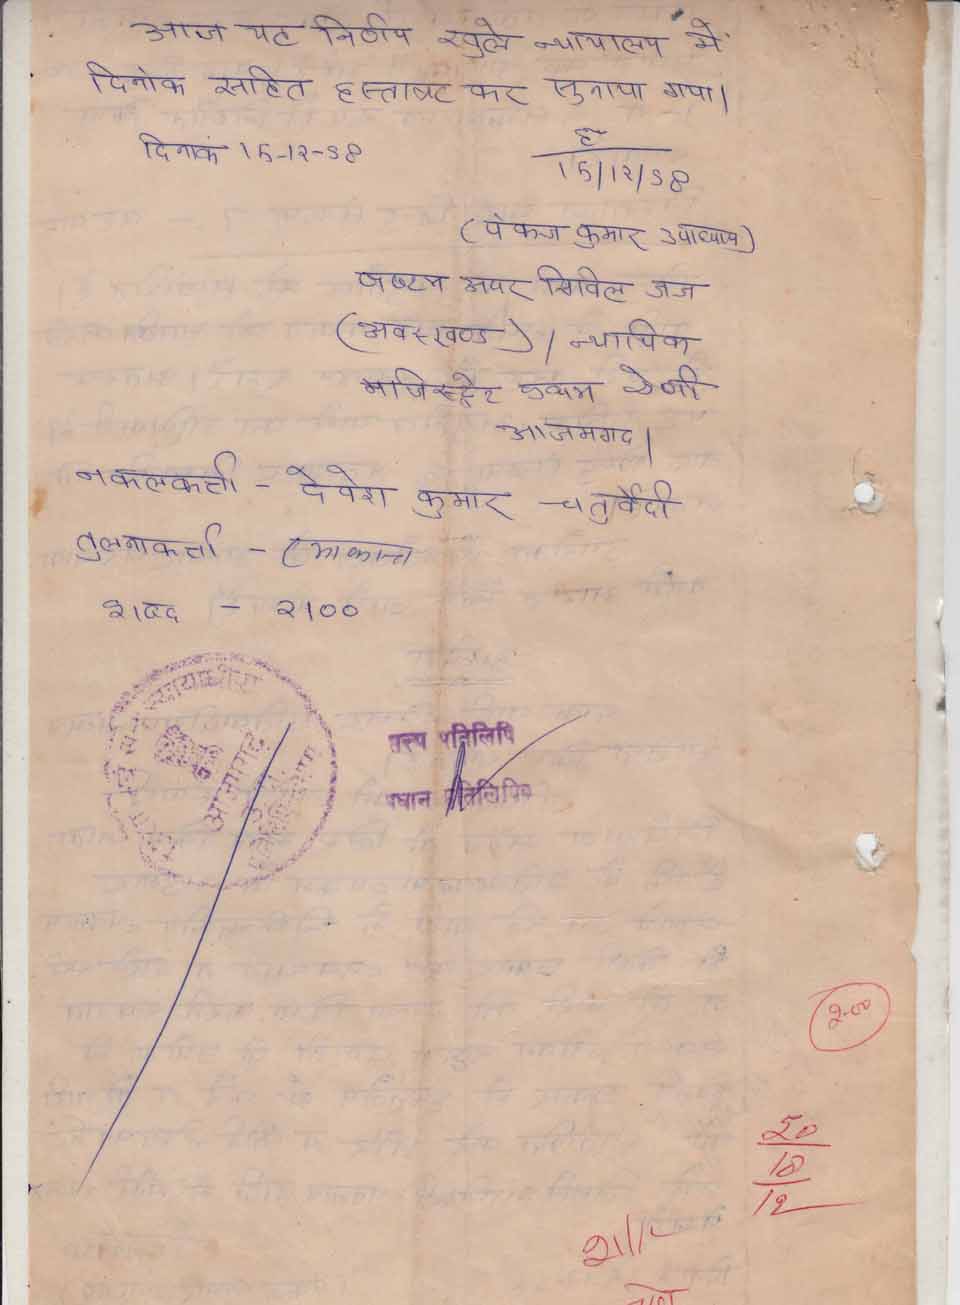 आज यह निर्णय खुले न्यायालय में
दिनांक सहित हस्ताक्षर कर सुनाया गया।
दिनांक 15-12-98
ह०
15/12/98
(पंकज कुमार उपाध्याय)
अष्टम अपर सिविल जज
(अवरखण्ड) / न्यायिक
मजिस्ट्रेट प्रथम श्रेणी
आजमगढ़।
नकलकर्ता - देवेश कुमार चतुर्वेदी
तुलनाकर्ता - रमाकान्त
शब्द - २१००
सत्य प्रतिलिपि
प्रधान प्रतिलिपिक
आजमगढ़
2.00
50
18
12